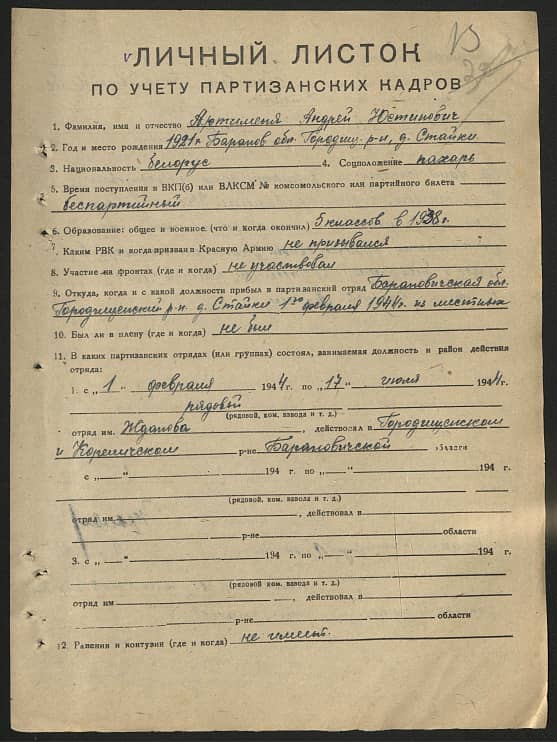 ЛИЧНЫЙ ЛИСТОК
ПО УЧЕТУ ПАРТИЗАНСКИХ КАДРОВ
1. Фамилия, имя и отчество Артименя Андрей Юстинович
2. Год и место рождения 1921 г. Баранов. обл. Городищ. р-н, д. Стайки
3. Национальность белорус 4. Соцположение пахарь
5. Время поступления в ВКП(б) или ВЛКСМ № комсомольского или партийного билета
беспартийный
6. Образование: общее и военное (что и когда окончил) 5 классов в 1938 г.
7. Каким РВК и когда призван в Красную Армию не призывался
8. Участие на фронтах (где и когда) не участвовал
9. Откуда, когда и с какой должности прибыл в партизанский отряд Барановичская обл.
Городищенский р-н д. Стайки 1го февраля 1944 г. из местных
10. Был ли в плену (где и когда) не был
11. В каких партизанских отрядах (или группах) состоял, занимаемая должность и район действия
отряда:
1. с „1" февраля 1944 г. по „17" июля 1944 г.
рядовый
(рядовой, ком. взвода и т. д.)
отряд им. Жданова, действовал в Городищенском
и Кореличском р-не Барановичской области
с „—" 194 г. по „—" 194 г.
(рядовой, ком. взвода и т. д.)
отряд им. , действовал в
р-не области
3. с „—" 194 г. по „—" 194 г.
(рядовой, ком. взвода и т. д.)
отряд им , действовал в
р-не области
12. Ранения и контузии (где и когда) не имеет.